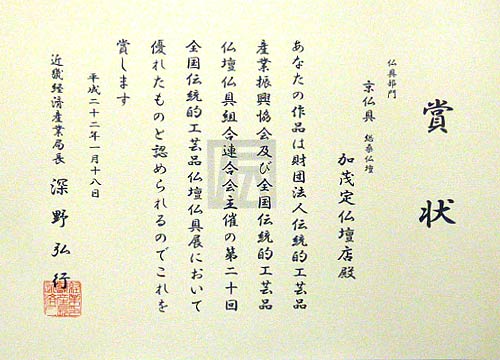 賞状
仏具部門
京仏具 総桑仏壇
加茂定仏壇店殿
あなたの作品は財団法人伝統的工芸品
産業振興協会及び全国伝統的工芸品
仏壇仏具組合連合会主催の第二十回
全国伝統的工芸品仏壇仏具展において
優れたものと認められるのでこれを
賞します
平成二十二年一月十八日
近畿経済産業局長 深野弘行